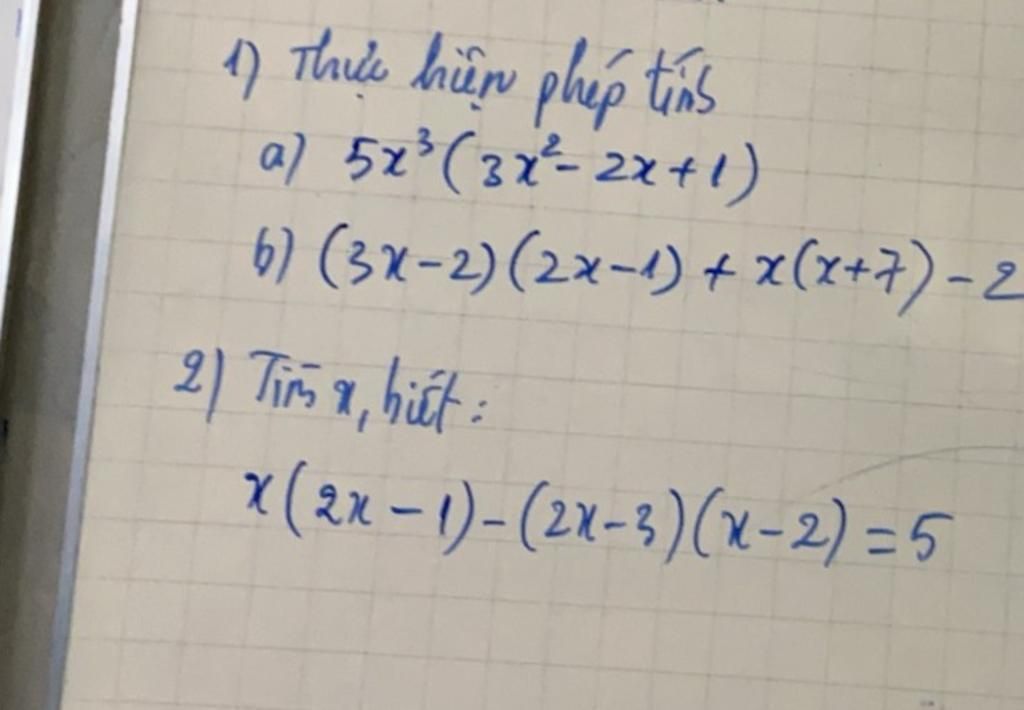 1) Thực hiện phép tính
a) 5x³(3x² - 2x + 1)
b) (3x - 2)(2x - 1) + x(x + 7) - 2
2) Tìm x, biết:
x(2x - 1) - (2x - 3)(x - 2) = 5